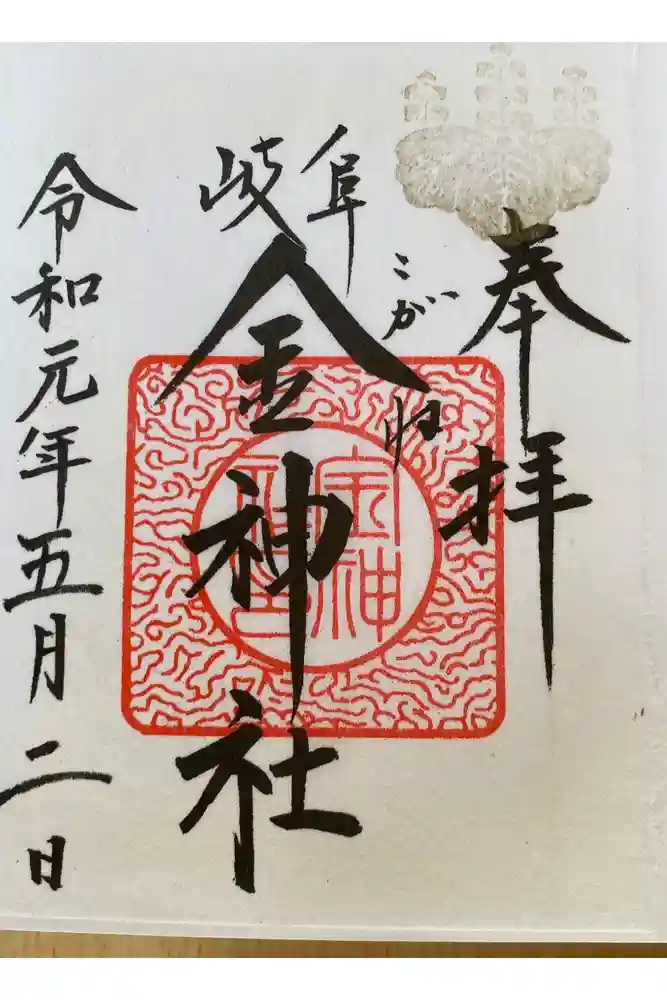 奉拝
岐阜
こがね
金神社
令和元年五月二日